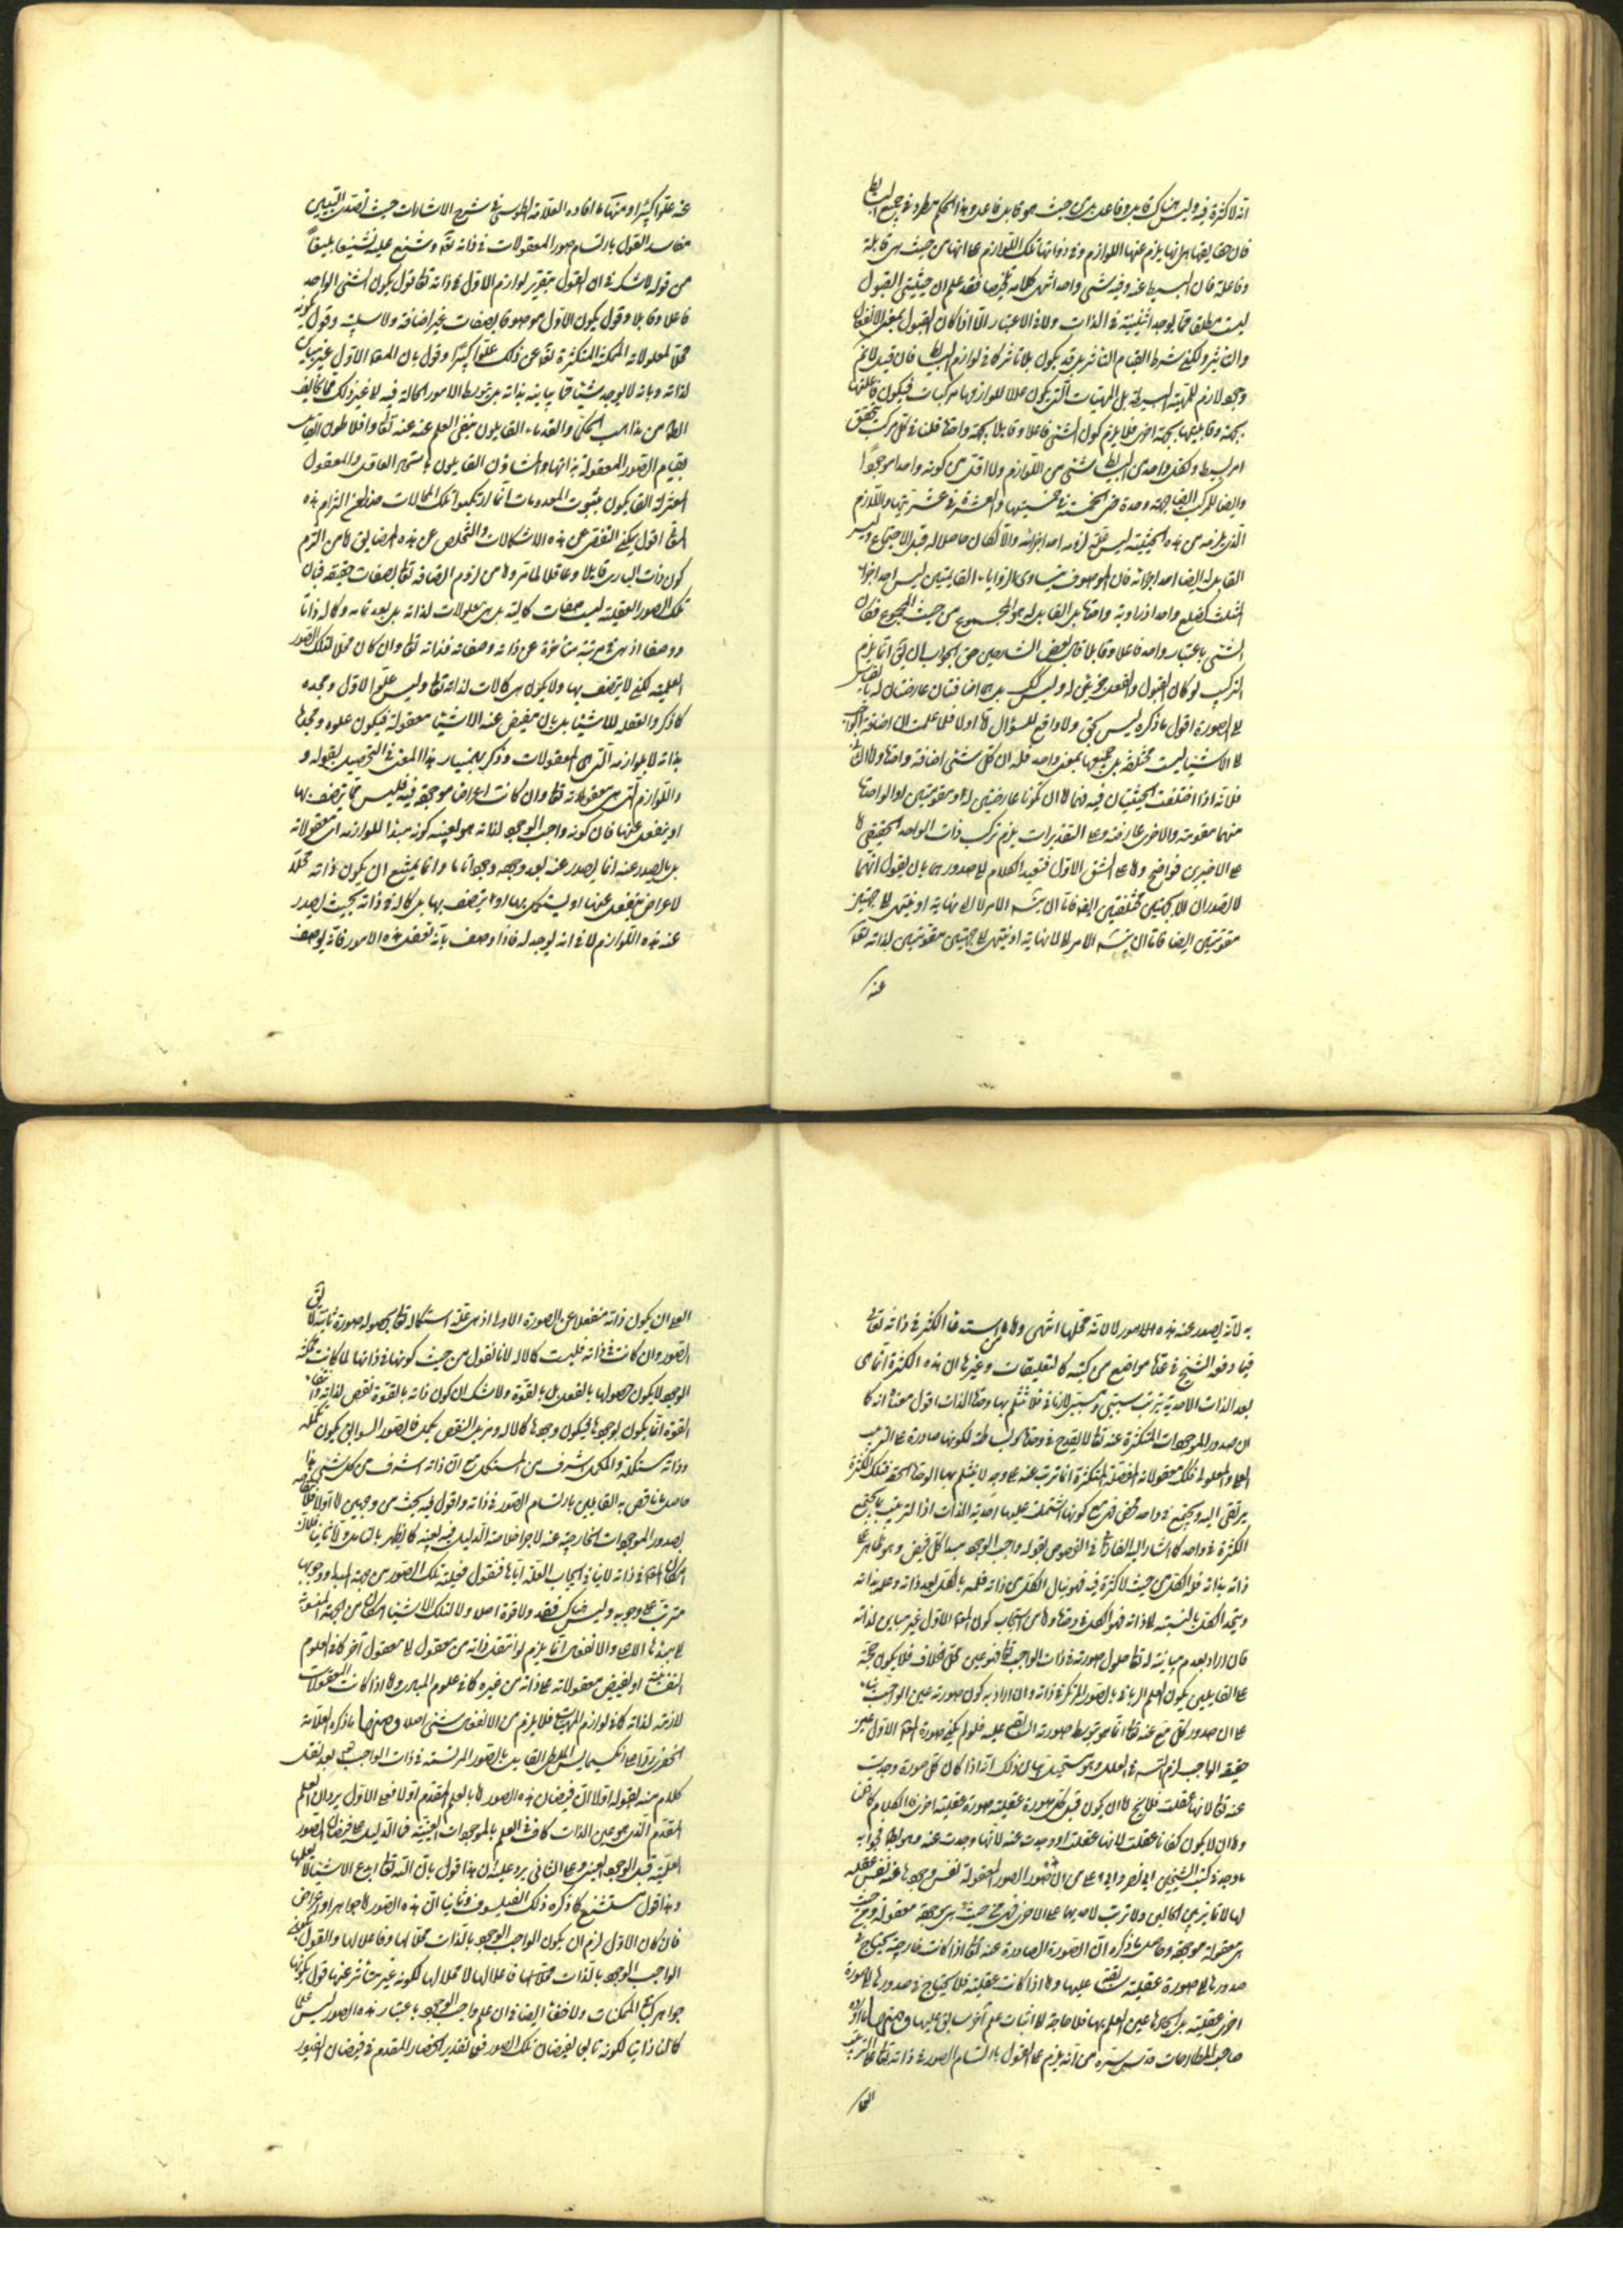 انه لا كثرة فيه وليس هناك قابل وفاعل بل من حيث هو قابل فاعل وهذا الحكم مطرد في جميع البسايط
فان حقايقها هي انها يلزم عنها اللوازم وفي ذواتها تلك اللوازم على انها من حيث هي قابلة
وفاعلة فان البسيط عنه وفيه شئ واحد انتهى كلامه فقد علم ان حيثيتى القبول
ليست مطلقا مما يوجد اثنينية في الذات ولا في الاعتبار الا اذا كان القبول بمعنى الانفعال
والتاثر ولكن شرط القيام التاثر بل قد يكون بلا تاثر كما في لوازم البسايط فان قيل لا نم
وجود لازم للمهية البسيطة بل المهيات التي يكون عللا للوازمها مركبات فيكون فاعليتها
بجهة وقابليتها بجهة اخرى فلا يلزم كون الشئ فاعلا وقابلا بجهة واحدة قلنا في كل مركب يتحقق
امر بسيط ولكل واحد من البسايط شئ من اللوازم ولا اقل من كونه واحدا موجودا
وايضا للمركب ايضا جهة وحدة حتى الخمسة في خمسيتها والعشرة في عشريتها واللازم
الذي يلزمه من هذه الحيثية ليس علة لزومه احد اجزائه والا لكان حاصلا له قبل الاجتماع وليس
القابل له ايضا احد اجزائه فان الموصوف بتساوى الزوايا القائمتين ليس احد اجزاء
المثلث كضلع واحد او زاوية واحدة بل القابل له هو المجموع من حيث المجموع فكان
الشئ باعتبار واحد فاعلا وقابلا قال بعض الشارحين حق الجواب ان يق انما يلزم
التركيب لو كان القبول والفعل جزئين له وليس كك بل هما اضافتان عارضتان له بالقياس
الى الصورة اقول ما ذكره ليس بحق ولا دافع للسؤال اما اولا فلما علمت ان اضافة الواجب
الى الاشياء ليست مختلفة بل جميعها بمعنى واحد فله الى كل شئ اضافة واحدة واما ثانيا
فلانه اذا اختلفت الحيثيتان فيه فاما ان تكونا عارضتين له او مقومتين او الواحدة
منهما مقومة والاخرى عارضة وعلى التقديرات يلزم تركب ذات الواحد الحقيقي اما
على الاخيرين فواضح واما على الشق الاول فنعيد الكلام الى صدورهما بان يقول انهما
لا تصدران الا بجهتين مختلفتين ايضا فاما ان يتسلسل الامر الى لا نهاية او ينتهى الى جهتين
مقومتين ايضا فاما ان يتسلسل الامر الى لا نهاية او ينتهى الى جهتين مقومتين لذاته تعالى
عنه
عنه علوا كبيرا ومنها ما افاده العلامة الطوسى في شرح الاشارات حيث تصدى لتبيين
مفاسد القول بارتسام صور المعقولات في ذاته تعالى وشنع عليه تشنيعا بليغا
من قوله لا شك في ان القول بتقرير لوازم الاول في ذاته تعالى قول بكون الشئ الواحد
فاعلا وقابلا وقول بكون الاول موصوفا بصفات غير اضافة ولا سلبية وقول بكونه
محلا لمعلولاته الممكنة المتكثرة تعالى عن ذلك علوا كبيرا وقول بان المعلول الاول غير مباين
لذاته وبانه لا يوجد شيئا مما يباينه بذاته بل بتوسط الامور الحالة فيه الى غير ذلك مما يخالف
الظاهر من مذاهب الحكماء والقدماء القايلون بنفى العلم عنه تعالى وافلاطون القايل
بقيام الصور المعقولة بذاتها والمشاؤن القايلون باتحاد العاقل والمعقول
المعتزلة القايلون بثبوت المعدومات انما ارتكبوا تلك المحالات حذرا من التزام هذه
المعانى اقول يمكن التفصى عن هذه الاشكالات والتخلص عن هذه المضايق لمن التزم
كون ذات البارى قابلا وعاقلا لما تر واما من لزوم اتصافه تعالى بصفات حقيقية فبان
تلك الصور العقلية ليست صفات كمالية بل هي معلولات لذاته بل بعد تمامه وكماله ذاتا
ووصفا اذ هي في مرتبة متأخرة عن ذاته وصفاته فذاته تعالى وان كان محلا لتلك الصور
العلمية لكنه لا يتصف بها ولا يكون هي كمالات لذاته تعالى وليس علو الاول ومجده
كما ذكروا بعقله للاشياء بل بان يفيض عنه الاشياء معقولة فيكون علوه ومجده
بذاته لا بلوازمه التي هي المعقولات وذكر بهمنيار هذا المعنى في التحصيل بقوله و
واللوازم التي هي معقولاته تعالى وان كانت اعراضا موجودة فيه فليس مما يتصف بها
او ينفعل عنها فان كونه واجب الوجود لذاته هو بعينه كونه مبدا للوازمه اى معقولاته
بل ما يصدر عنه انما يصدر عنه بعد وجوده وجودا تاما وانما يمتنع ان يكون ذاته محلا
لاعراض ينفعل عنها او يستكمل بها او يتصف بها بل كماله في ذاته بحيث يصدر
عنه هذه اللوازم لا في انه يوجد له فاذا وصف بانه تعقل هذه الامور فانه يوصف
به لانه يصدر عنه هذه الامور لا لانه محلها انتهى واما لزوم التكثر في ذاته تعالى
فيما دفعه الشيخ في عدة مواضع من كتبه كالتعليقات وغيرها ان هذه الكثرة انما هي
بعد الذات الاحدية بترتب سببى ومسببى لا زمانى فلا تنثلم بها وحدة الذات اقول معناه انه كما
ان صدور الموجودات المتكثرة عنه تعالى لا يقدح في وحدته وبساطته لكونها صادرة على الترتيب
العلى والمعلولى فلك معقولاته المفصلة المتكثرة انما ترتب عنه على وجه لا ينثلم بها الوحدة الحقة فتلك الكثرة
يرتقى اليه ويجتمع في واحد محض فهى مع كونها اشتملت عليها احدية الذات اذا الترتيب بما يجمع
الكثرة في واحد كما اشار اليه الفارابى في الفصوص بقوله واجب الوجود مبدا كل فيض وهو ظاهر على
ذاته بذاته فله الكل من حيث لا كثرة فيه فهو ينال الكل من ذاته فعلمه بالكل بعد ذاته وعلمه بذاته
ويتحد الكل بالنسبة الى ذاته فهو الكل في وحدة واما من استيجاب كون المعلول الاول غير مباين لذاته
فان اراد بعدم مباينته له تعالى حلول صورته في ذات الواجب تعالى فهو عين محل الخلاف فلا يكون حجة
على القايلين بكون العلم الربانى بالصور المرتكزة في ذاته وان اراد به كون صورته عين الواجب بناء
على ان صدور كل ما يقع عنه تعالى انما هو بتوسط صورته السابقة عليه فلو لم يكن صورة المعلول الاول عين
حقيقة الواجب لزم التسلسل في العلل وهو مستحيل بيان ذلك انه اذا كان كل صورة وجدت
عنه تعالى لانها عقلت فلا يخ اما ان يكون قبل كل صورة عقلية صورة عقلية اخرى فالكلام كما مر
واما ان لا يكون لكنا عقلت لانها عقلت او وجدت عنه لانها وجدت عنه وهو باطل فجوابه
ما وجد في كتب الشيخين ابى نصر وابى على من ان صدور الصور المعقولة نفس وجودها عنه نفس عقله
لها لا تمايز بين الحالين ولا ترتب لاحديهما على الاخرى فهى من حيث هي موجودة معقولة ومن حيث
هي معقولة موجودة وحاصل ما ذكره ان الصورة الصادرة عنه تعالى اذا كانت خارجية يحتاج في
صدورها الى صورة عقلية سابقة عليها واما اذا كانت عقلية فلا يحتاج في صدورها الى صورة
اخرى عقلية بل ايجادها عين العلم بها فلا حاجة الى اثبات علم آخر سابق عليها ومنها ما اورده
صاحب المطارحات قدس سره من انه يلزم على القول بارتسام الصور في ذاته تعالى على الترتيب
العلى ان يكون ذاته منفعلا عن الصورة الاولى اذ هي علة استكماله تعالى بحصول صورة ثانية لا يق
الصور وان كانت في ذاته فليست كمالا له لانا نقول من حيث كونها في ذاتها لما كانت ممكنة
الوجود لا يكون حصولها بالفعل بل بالقوة ولا شك ان كون ذاته بالقوة نقص لذاته وانتفاء
القوة انما يكون بوجودها فيكون وجودها كمالا له ومزيل النقص مكمل فالصور السوابق يكون مكمله
وذاته مستكملة والمكمل اشرف من المستكمل مع ان ذاته اشرف من كل شئ هذا
حاصل ما ناقض به القايلين بارتسام الصور في ذاته واقول فيه بحث من وجهين اما اولا فلانتقاضه
بصدور الموجودات الخارجية عنه لاجراء خلاصة الدليل فيه بعينه كما يظهر بالتامل واما ثانيا فلان
امكان المعلول في ذاته لا ينافى ايجاب العلة اياه فنقول فعلية تلك الصور من جهة المبدا ووجوبها
مترتب على وجوبه وليس هناك فقد ولا قوة اصلا ولا لتلك الاشياء امكان من الجهة المنسوبة
الى مبدئها الاعلى والانفعال انما يلزم لو انتقل ذاته من معقول الى معقول آخر كما في العلوم
النفسانية او يفيض معقولاته على ذاته من غيره كما في علوم المبادى واما اذا كانت المعقولات
لازمة لذاته كما في لوازم المهيات فلا يلزم من الانفعال شئ اصلا ومنها ما ذكره العلامة
الخفرى ردا على انكسيمايس الملطى القايل بالصور المرتسمة في ذات الواجب تعالى بعد نقل
كلام منه بقوله اولا ان فيضان هذه الصور اما بالعلم المقدم اولا فعلى الاول يرد ان العلم
المقدم الذي هو عين الذات كاف في العلم بالموجودات العينية فما الدليل على فيضان الصور
العلمية قبل الوجود العينى وعلى الثانى يرد عليه ان هذا قول بان الله تعالى ابدع الاشياء لا بعلمها
وهذا قول مستشنع كما ذكره ذلك الفيلسوف وثانيا ان هذه الصور اما جواهر او اعراض
فان كان الاول لزم ان يكون الواجب الوجود بالذات محلا لها وفاعلا لها والقول بكون
الواجب الوجود بالذات محلا لها فاعلا لها لا محلا لها لكونه غير متأثر عنها قول بكونها
جواهر كسائر الممكنات ولا خفاء ايضا في ان علم واجب الوجود باعتبار هذه الصور ليس علما
كمالنا ذاتيا لكونه تابعا لفيضان تلك الصور فعلى تقدير انحصار المقدم في فيضان الصور